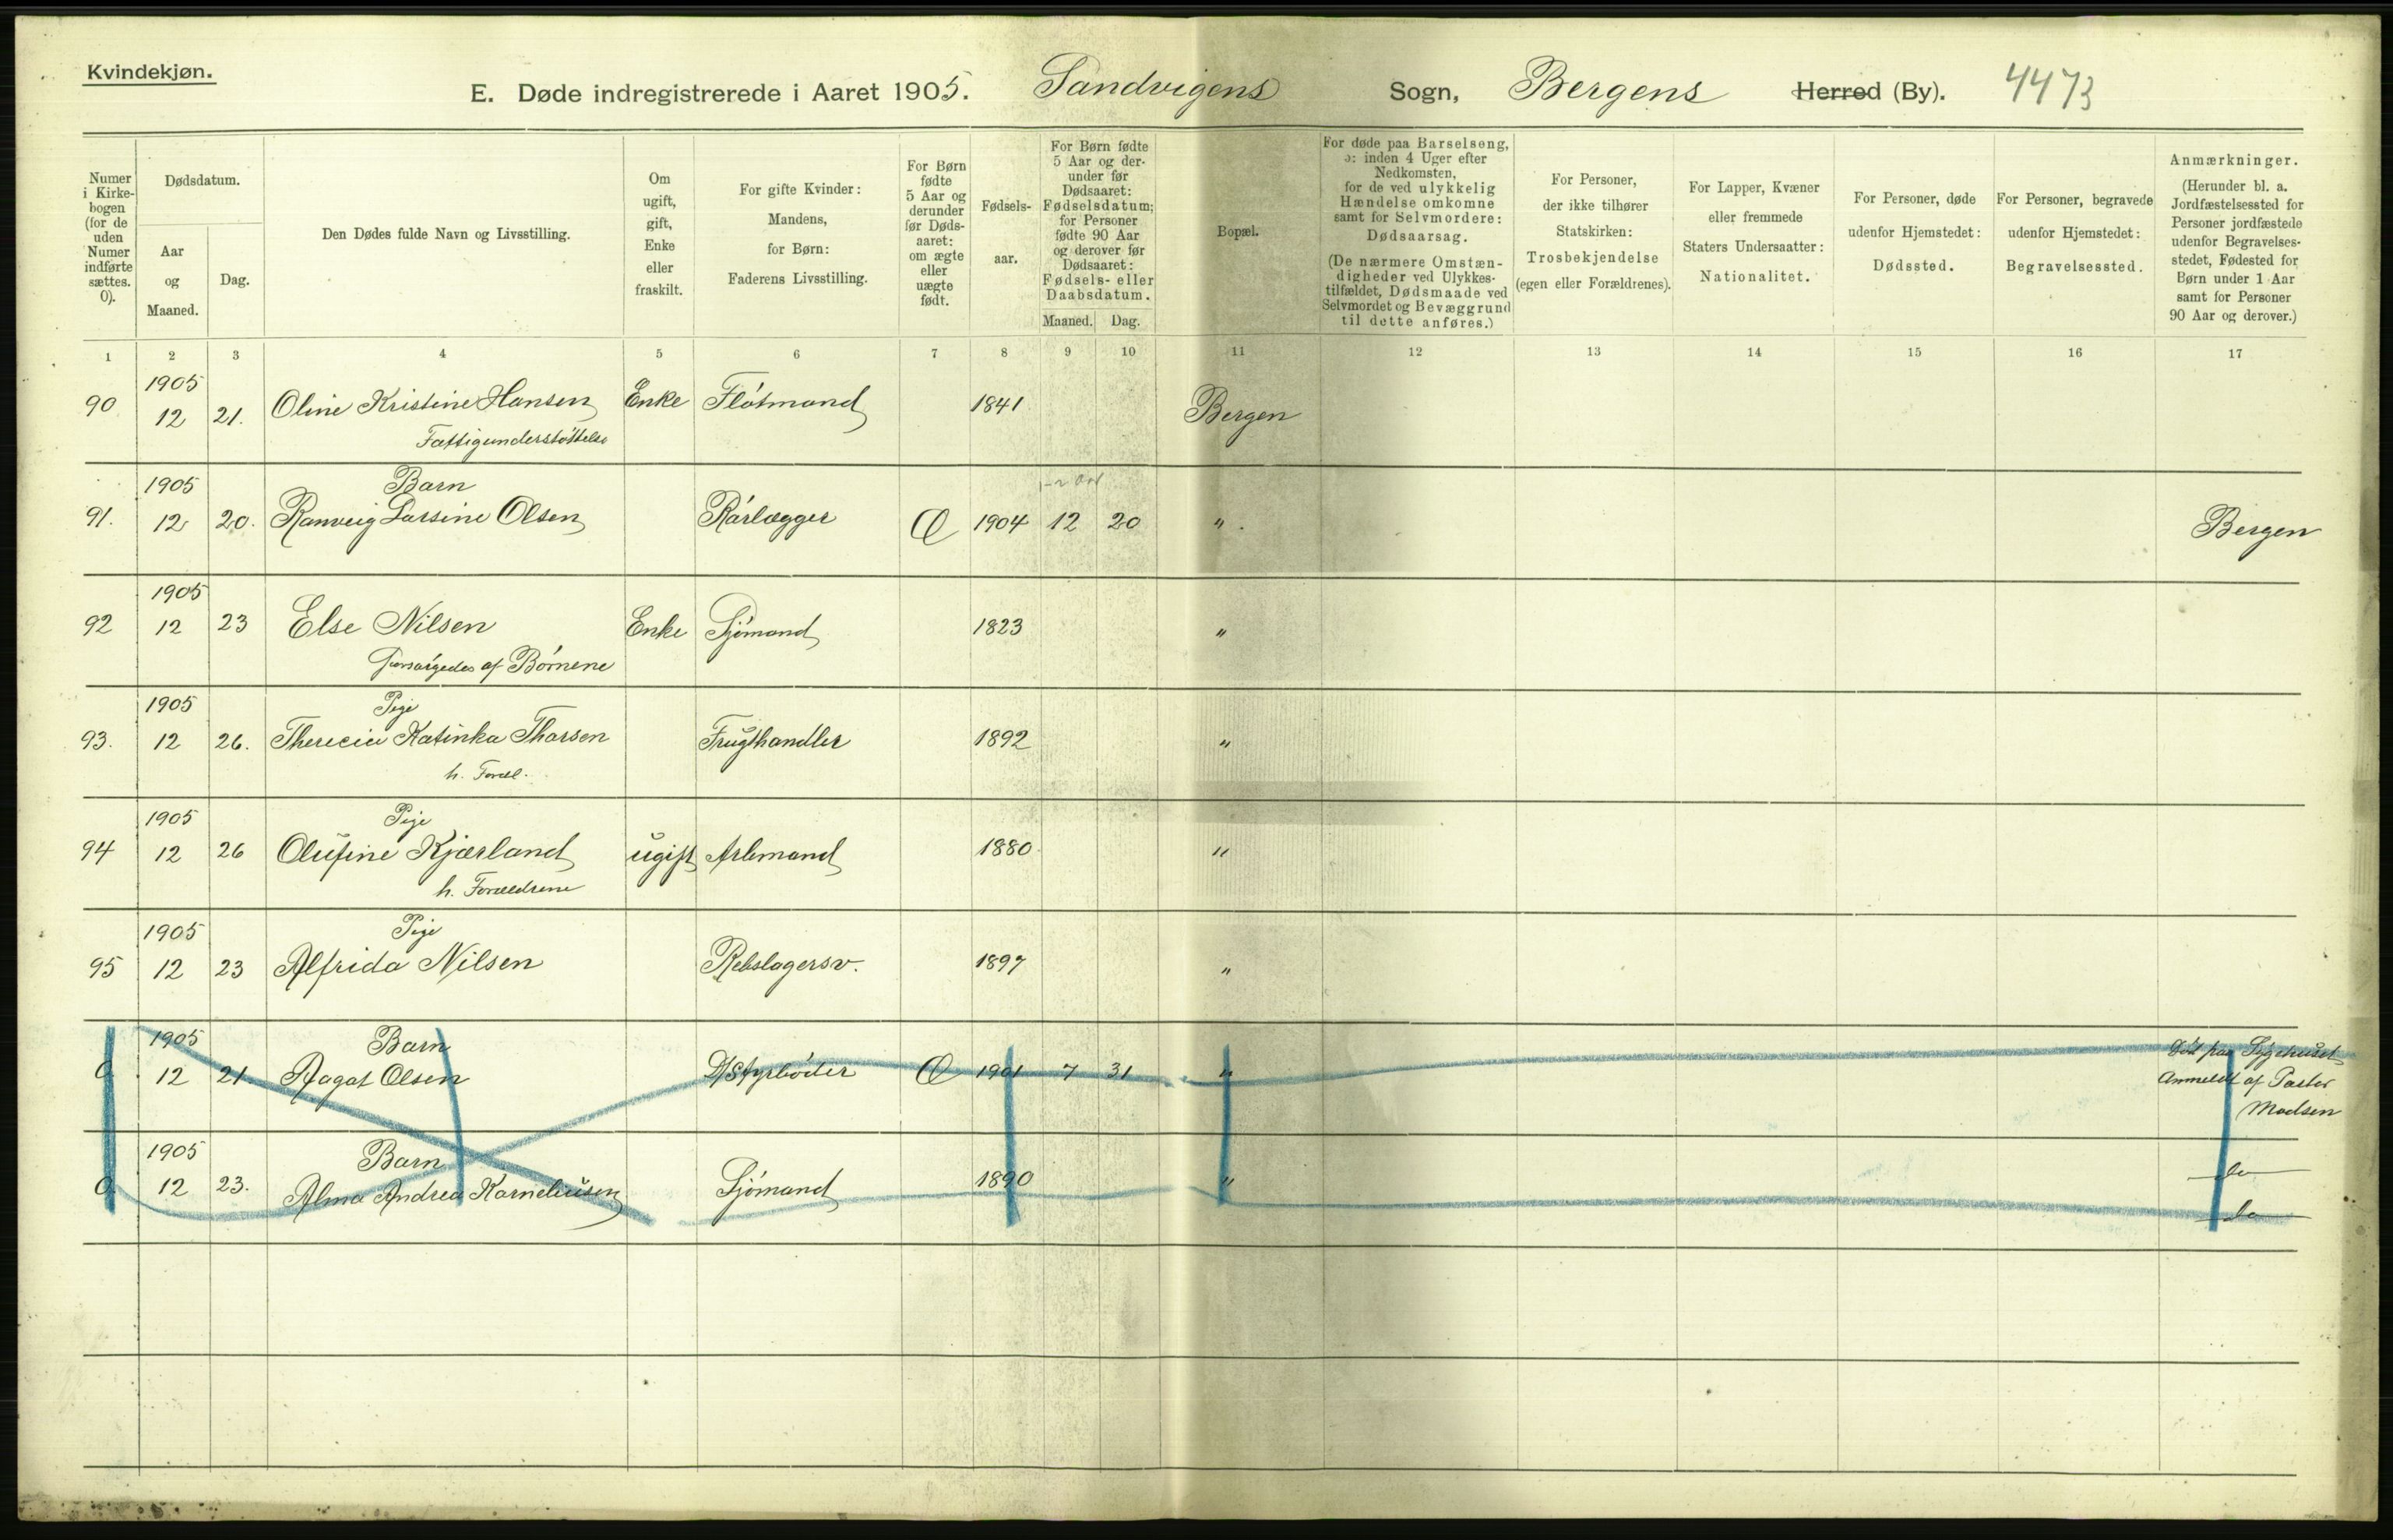 Kvindekjøn.
E. Døde indregistrerede i Aaret 1905. Sandvigens Sogn, Bergens Herred (By). 4473
Numer i Kirkebogen (for de uden Numer indførte sættes. 0).
Dødsdatum.
Aar og Maaned.
Dag.
Den Dødes fulde Navn og Livsstilling.
Om ugift, gift, Enke eller fraskilt.
For gifte Kvinder: Mandens, for Børn: Faderens Livsstilling.
For Børn fødte 5 Aar og derunder før Døds-aaret: om ægte eller uægte født.
Fødsels-aar.
For Børn fødte 5 Aar og der-under før Dødsaaret: Fødselsdatum; for Personer fødte 90 Aar og derover før Dødsaaret: Fødsels- eller Daabsdatum.
Maaned. Dag.
Bopæl.
For døde paa Barselseng, ɔ: inden 4 Uger efter Nedkomsten, for de ved ulykkelig Hændelse omkomne samt for Selvmordere: Dødsaarsag. (De nærmere Omstæn-digheder ved Ulykkes-tilfældet, Dødsmaade ved Selvmordet og Bevæggrund til dette anføres.)
For Personer, der ikke tilhører Statskirken: Trosbekjendelse (egen eller Forældrenes).
For Lapper, Kvæner eller fremmede Staters Undersaatter: Nationalitet.
For Personer, døde udenfor Hjemstedet: Dødssted.
For Personer, begravede udenfor Hjemstedet: Begravelsessted.
Anmærkninger. (Herunder bl. a. Jordfæstelsessted for Personer jordfæstede udenfor Begravelses-stedet, Fødested for Børn under 1 Aar samt for Personer 90 Aar og derover.)
1 2 3 4 5 6 7 8 9 10 11 12 13 14 15 16 17
1905
90 12 21. Oline Kristine Hansen Enke Fløtmand 1841 Bergen
Fattigunderstøttelse
1905 Barn 1-2 Aar
91. 12 20. Ranveig Larsine Olsen Rørlægger Æ 1904 12 20 " Bergen
1905
92 12 23 Else Nilsen Enke Sjømand 1823 "
Forsørgedes af Børnene
1905 Pige
93. 12 26. Therecia Katinka Thorsen Frugthandler 1892 "
h. Foræl.
1905 Pige
94 12 26 Olufine Kjærland ugift Arbmand 1880 "
h. Forældrene
1905 Pige
95 12 23 Alfrida Nilsen Rebslagersv. 1897 "
1905 Barn Død paa Sygehuset
0 12 21. Aagat Olsen D/S fyrbøder Æ 1901 7 31 " Anmeldt af Pastor
Madsen
1905 Barn do
0. 12 23. Alma Andrea Korneliusen Sjømand 1890 "
do